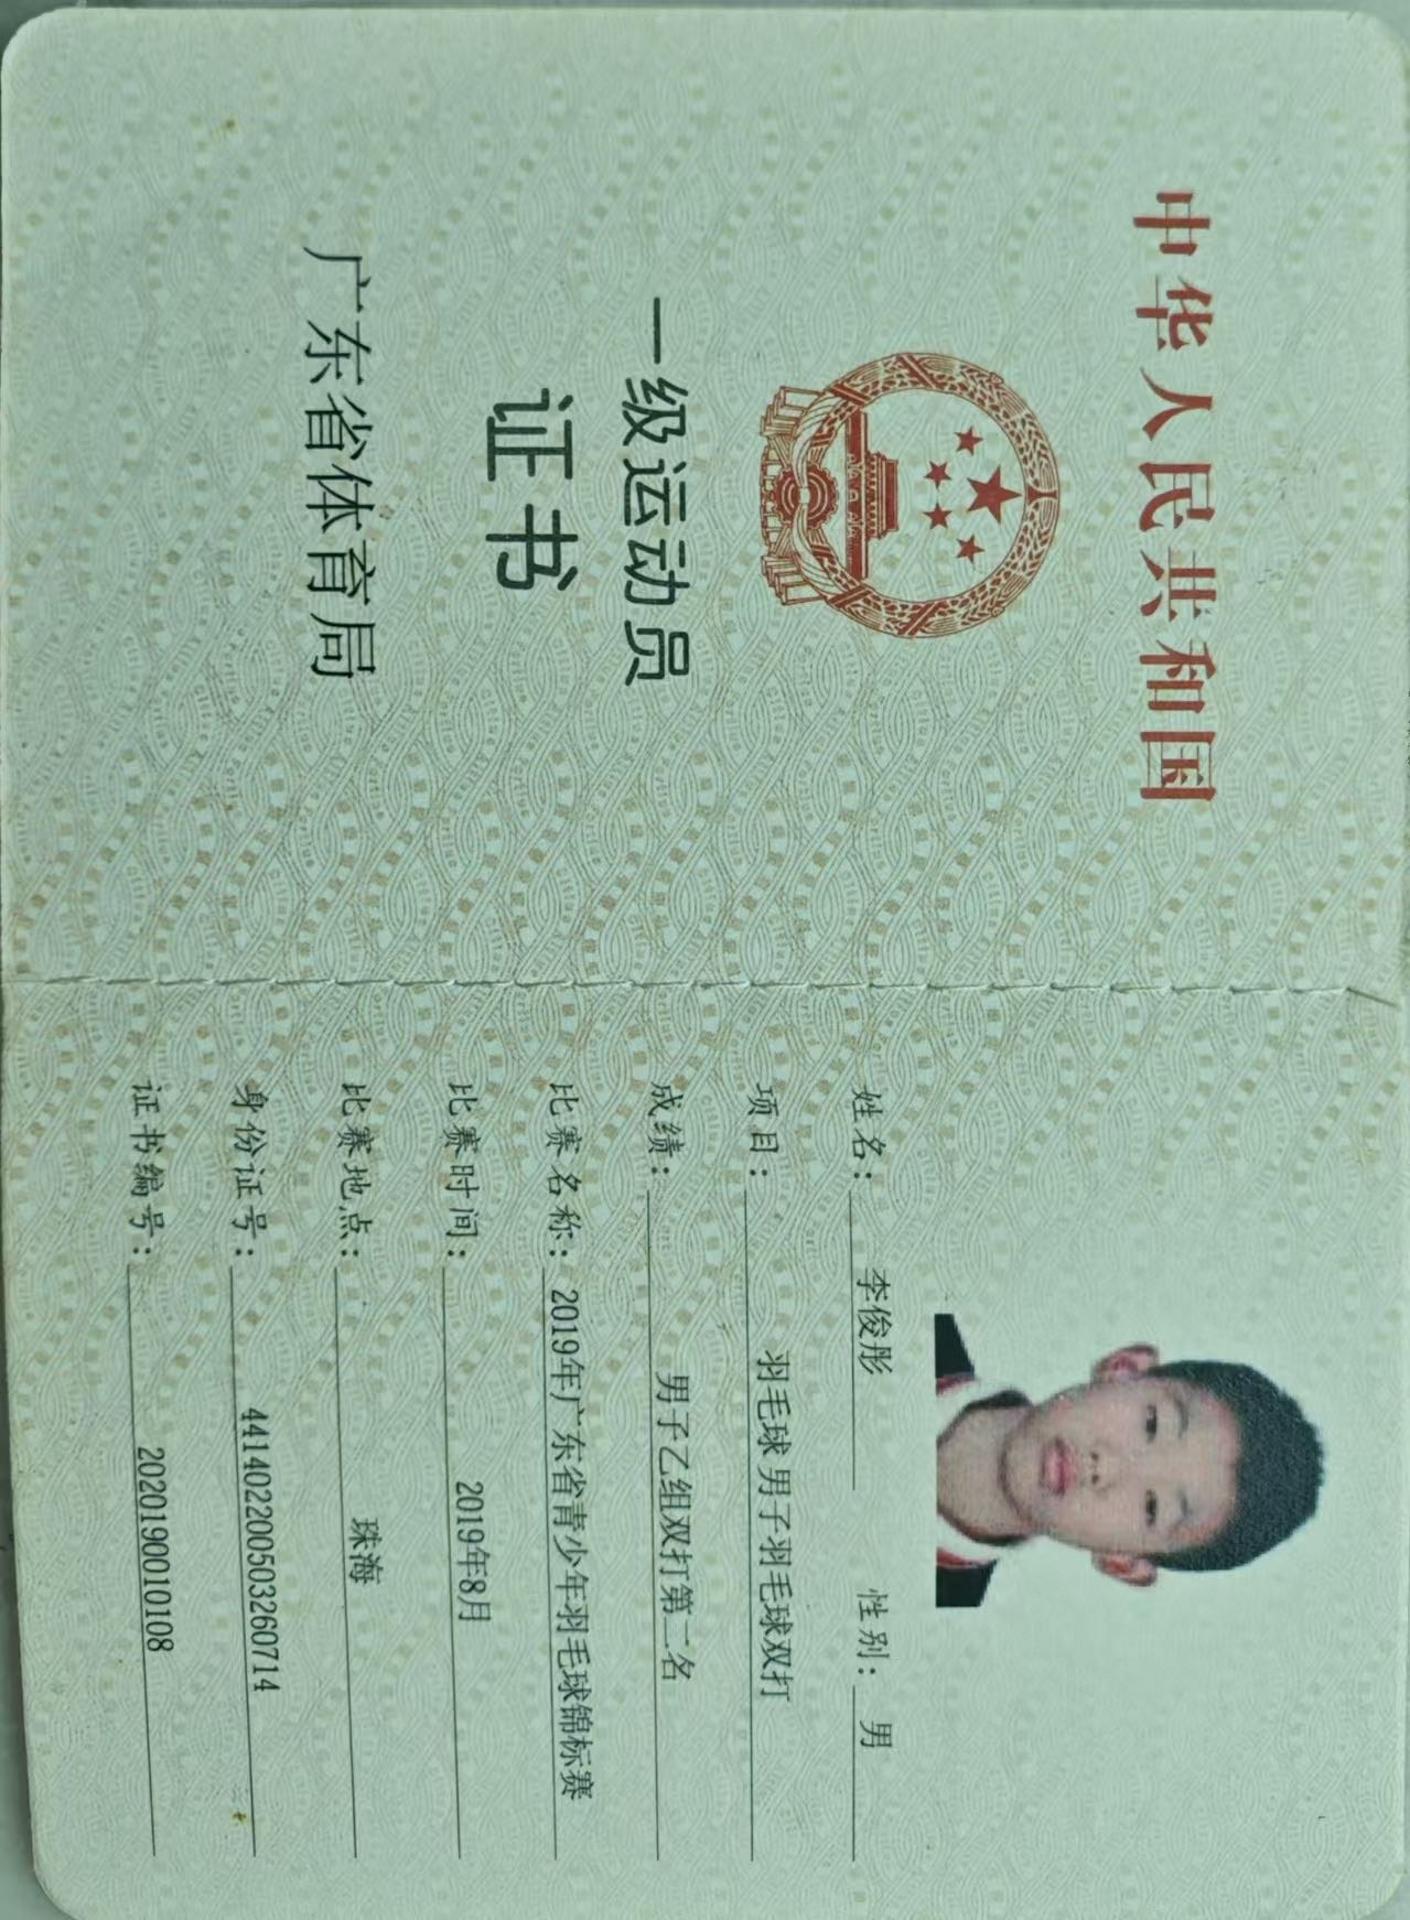 中华人民共和国
一级运动员
证书
广东省体育局
姓名：李俊彤 性别：男
项目：羽毛球 男子羽毛球双打
成绩：男子乙组双打第二名
比赛名称：2019年广东省青少年羽毛球锦标赛
比赛时间：2019年8月
比赛地点：珠海
身份证号：441402200503260714
证书编号：2020190010108